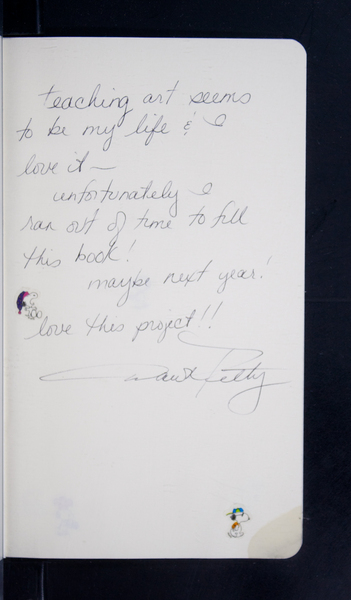 teaching art seems
to be my life & I
love it—
unfortunately I
ran out of time to fill
this book!
maybe next year!
love this project!!